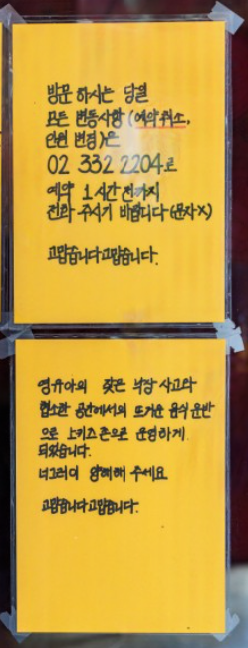 방문 하시는 당일
모든 변동사항 (예약취소,
인원 변경)은
02 332 2204로
예약 1시간 전까지
전화 주시기 바랍니다(문자X)
고맙습니다고맙습니다.
영유아의 잦은 낙상 사고와
협소한 공간에서의 뜨거운 음식 운반
으로 노키즈 존으로 운영하게
되었습니다.
너그러이 양해해 주세요
고맙습니다고맙습니다.